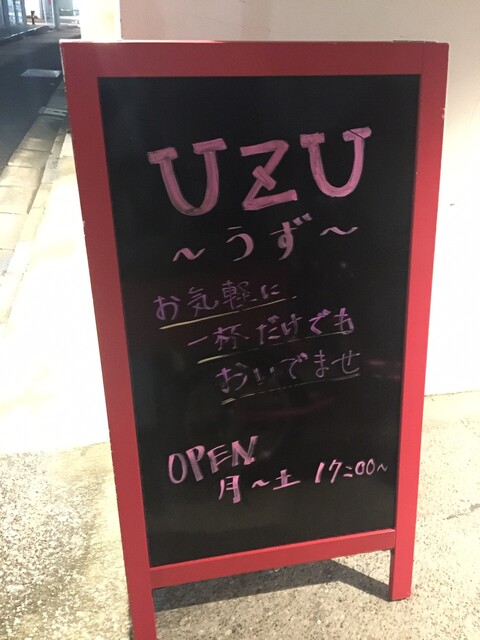 UZU
～うず～
お気軽に
一杯だけでも
おいでませ
OPEN
月～土 17:00～